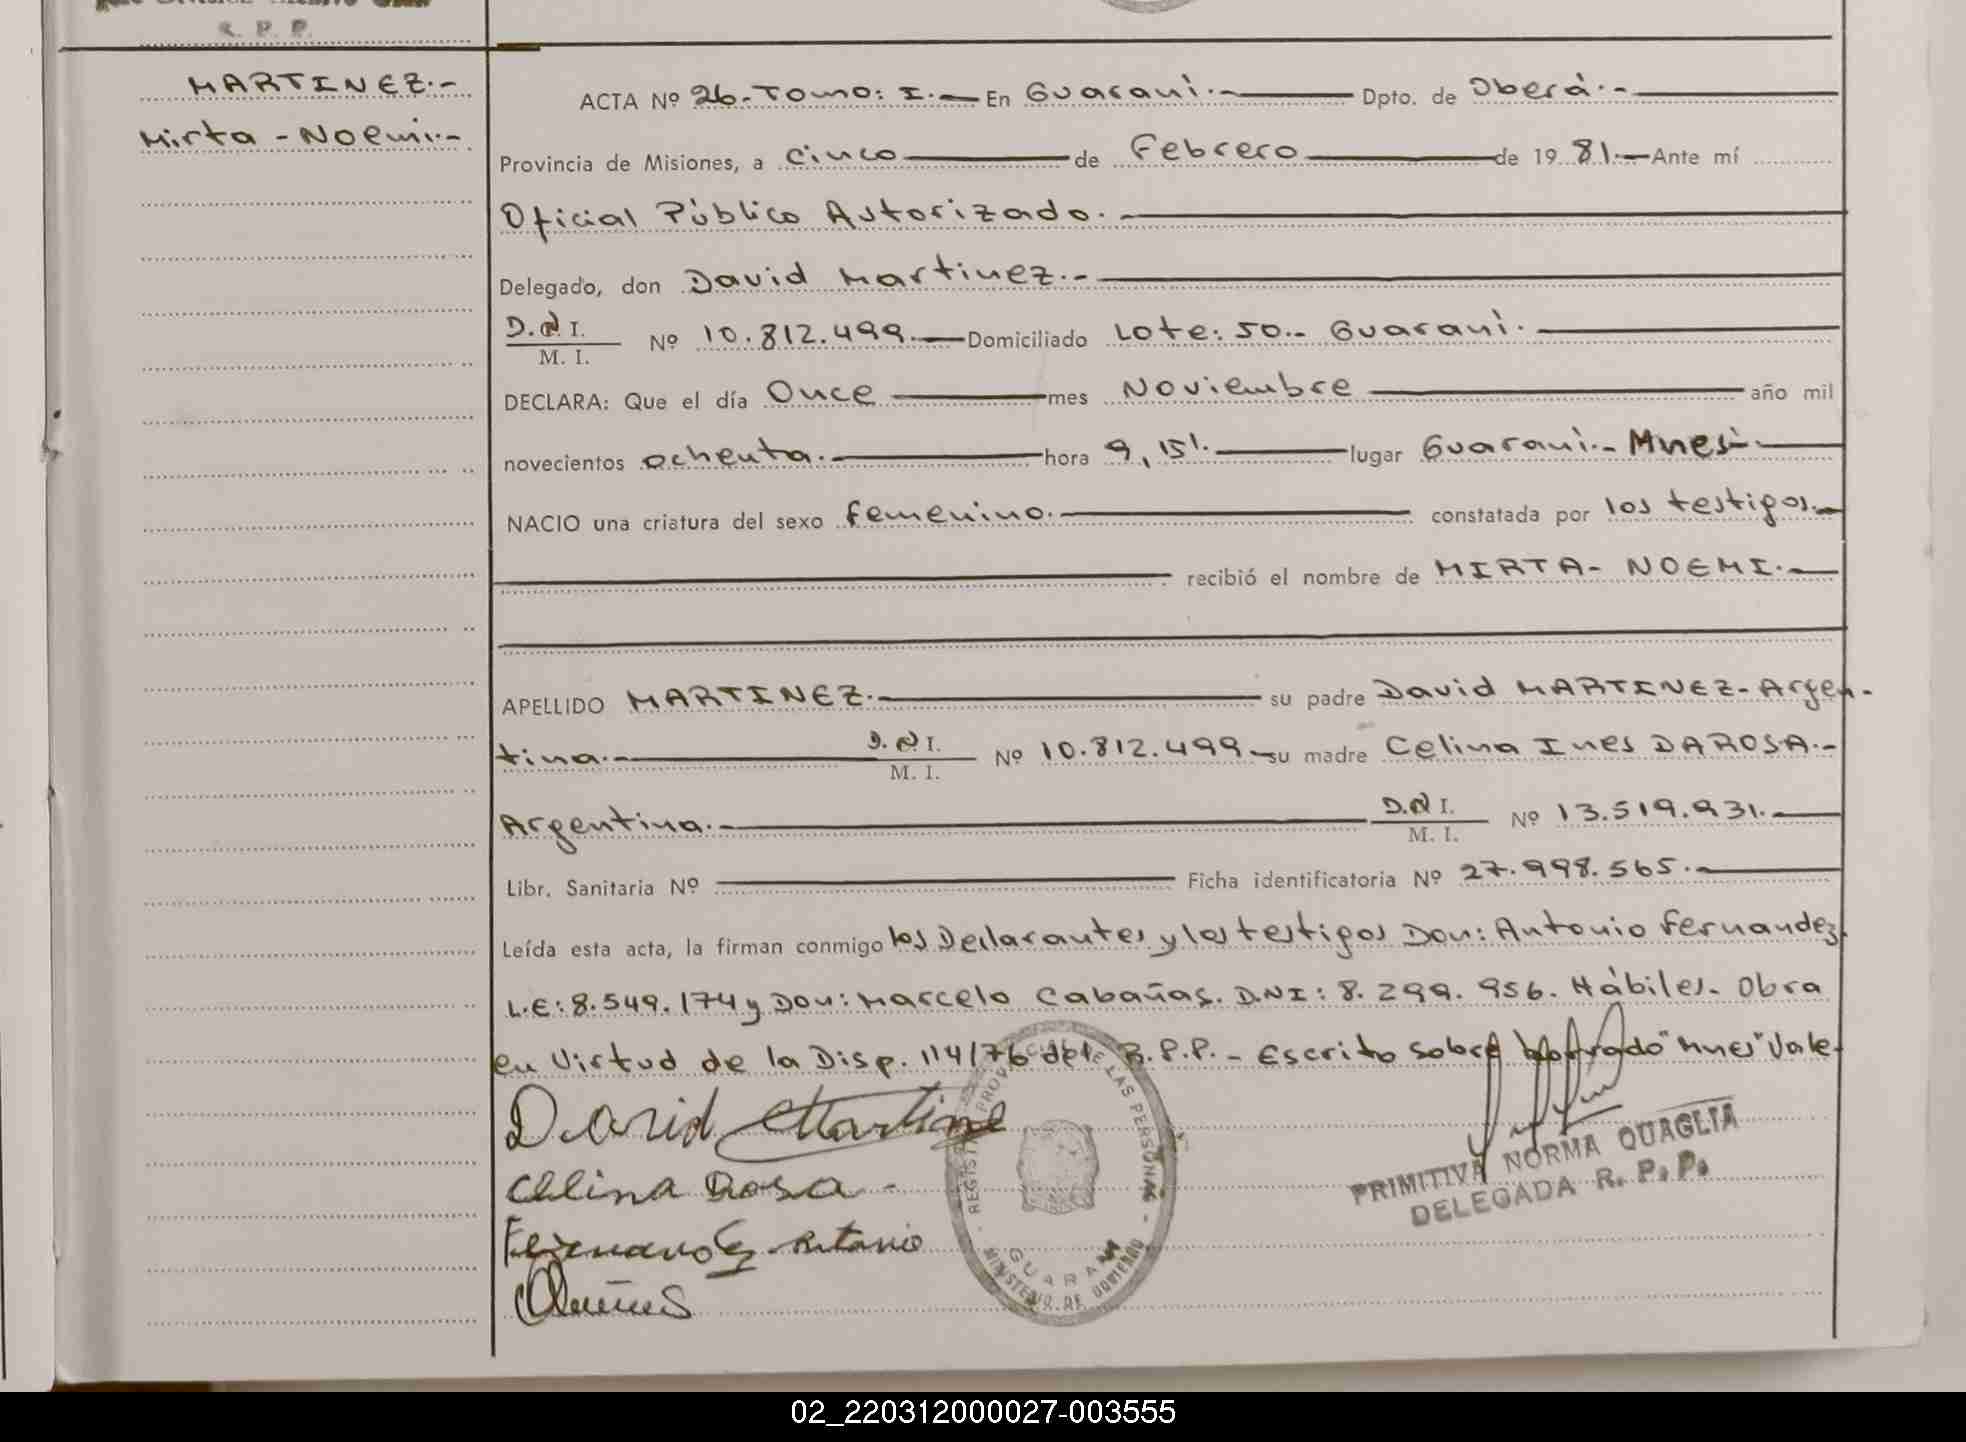 R. P. P.
MARTINEZ.-
Mirta - Noemi.-
ACTA Nº 26.-Tomo: I.- En Guaraní.- Dpto. de Oberá.-
Provincia de Misiones, a cinco de Febrero de 1981.- Ante mí
Oficial Público Autorizado.-
Delegado, don David Martinez.-
D.N.I.
M. I.
Nº 10.812.499.- Domiciliado Lote: 50.- Guaraní.-
DECLARA: Que el día Once mes Noviembre año mil
novecientos ochenta.- hora 9,15'.- lugar Guaraní.- Mnes.-
NACIO una criatura del sexo femenino.- constatada por los testigos.-
recibió el nombre de MIRTA- NOEMI.-
APELLIDO MARTINEZ.- su padre David MARTINEZ-Argen-
tina.- D.N.I.
M. I.
Nº 10.812.499.- su madre Celina Ines DAROSA.-
Argentina.- D.N.I.
M. I.
Nº 13.519.931.-
Libr. Sanitaria Nº Ficha identificatoria Nº 27.998.565.-
Leída esta acta, la firman conmigo los Declarantes y los testigos Don: Antonio Fernandez
L.E: 8.549.174 y Don: Marcelo Cabañas. D.N.I: 8.299.956. Hábiles. Obra
en Virtud de la Disp. 114/76 del R.P.P.- Escrito sobre borrado "Mnes" Vale.
David Martine
Celina Rosa -
Fernandez Antonio
REGISTRO PROVINCIAL DE LAS PERSONAS
GUARANI
MINISTERIO DE GOBIERNO
PRIMITIVA NORMA QUAGLIA
DELEGADA R. P. P.
02_220312000027-003555